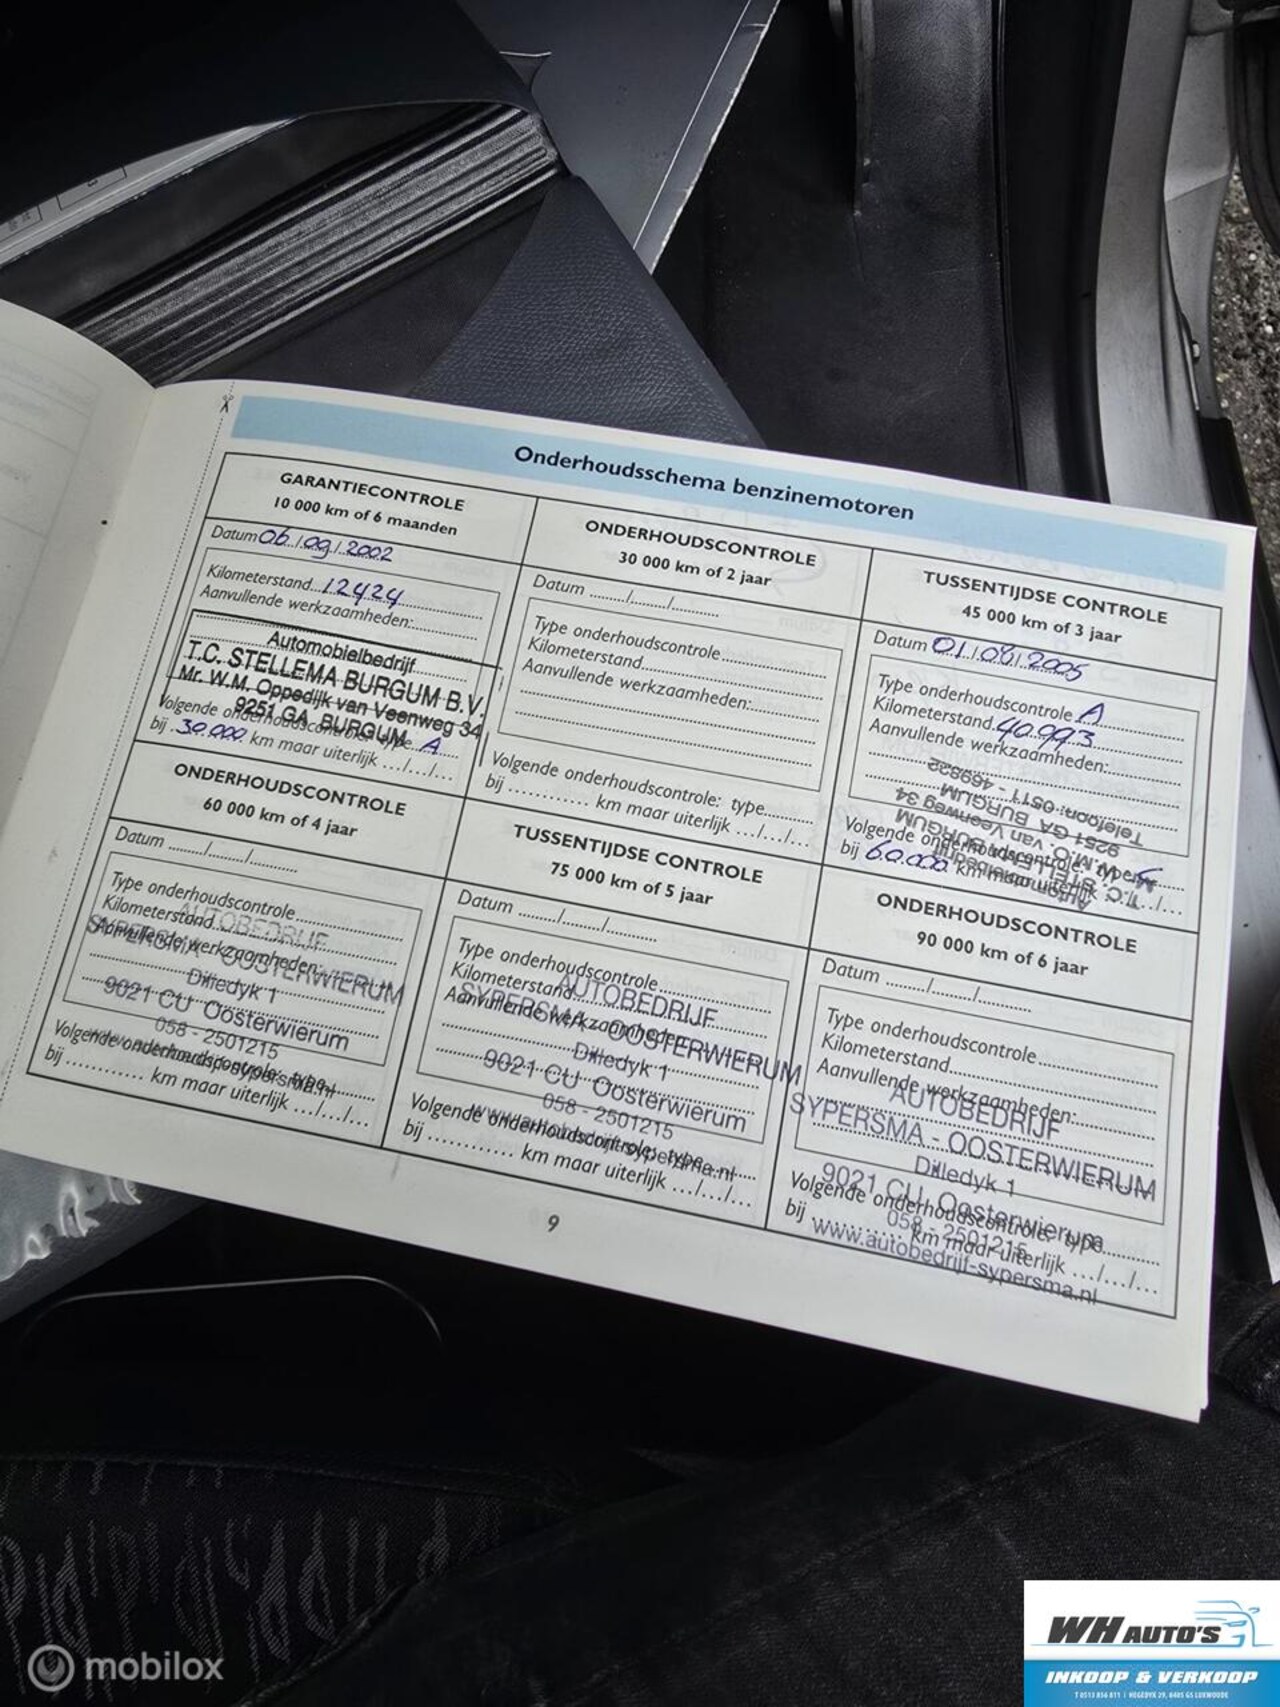 Onderhoudsschema benzinemotoren
GARANTIECONTROLE
10 000 km of 6 maanden
Datum 06/09/2002
Kilometerstand 12424
Aanvullende werkzaamheden:
Automobielbedrijf
T.C. STELLEMA BURGUM B.V.
Mr. W.M. Oppedijk van Veenweg 34
9251 GA BURGUM
Volgende onderhoudscontrole: type A
bij 30.000 km maar uiterlijk .../.../...
ONDERHOUDSCONTROLE
30 000 km of 2 jaar
Datum ........./........./.........
Type onderhoudscontrole
Kilometerstand
Aanvullende werkzaamheden:
Volgende onderhoudscontrole: type
bij ............ km maar uiterlijk .../.../...
TUSSENTIJDSE CONTROLE
45 000 km of 3 jaar
Datum 01/06/2005
Type onderhoudscontrole A
Kilometerstand 40.993
Aanvullende werkzaamheden:
Telefoon: 0511 - 469822
9251 GA BURGUM
van Veenweg 34
Volgende onderhoudscontrole:
bij 60.000 km maar uiterlijk .../.../...
ONDERHOUDSCONTROLE
60 000 km of 4 jaar
Datum ........./........./.........
Type onderhoudscontrole
Kilometerstand
Aanvullende werkzaamheden:
AUTOBEDRIJF
SYPERSMA - OOSTERWIERUM
Dilledyk 1
9021 CU Oosterwierum
058 - 2501215
www.autobedrijf-sypersma.nl
Volgende onderhoudscontrole: type
bij ............ km maar uiterlijk .../.../...
TUSSENTIJDSE CONTROLE
75 000 km of 5 jaar
Datum ........./........./.........
Type onderhoudscontrole
Kilometerstand
Aanvullende werkzaamheden:
AUTOBEDRIJF
SYPERSMA - OOSTERWIERUM
Dilledyk 1
9021 CU Oosterwierum
058 - 2501215
www.autobedrijf-sypersma.nl
Volgende onderhoudscontrole: type
bij ............ km maar uiterlijk .../.../...
ONDERHOUDSCONTROLE
90 000 km of 6 jaar
Datum ........./........./.........
Type onderhoudscontrole
Kilometerstand
Aanvullende werkzaamheden:
AUTOBEDRIJF
SYPERSMA - OOSTERWIERUM
Dilledyk 1
9021 CU Oosterwierum
058 - 2501215
www.autobedrijf-sypersma.nl
Volgende onderhoudscontrole: type
bij ............ km maar uiterlijk .../.../...
9
mobilox
WH AUTO'S
INKOOP & VERKOOP
T 0513 856 811 | HEGEDYK 29, 8405 GS LUXWOUDE